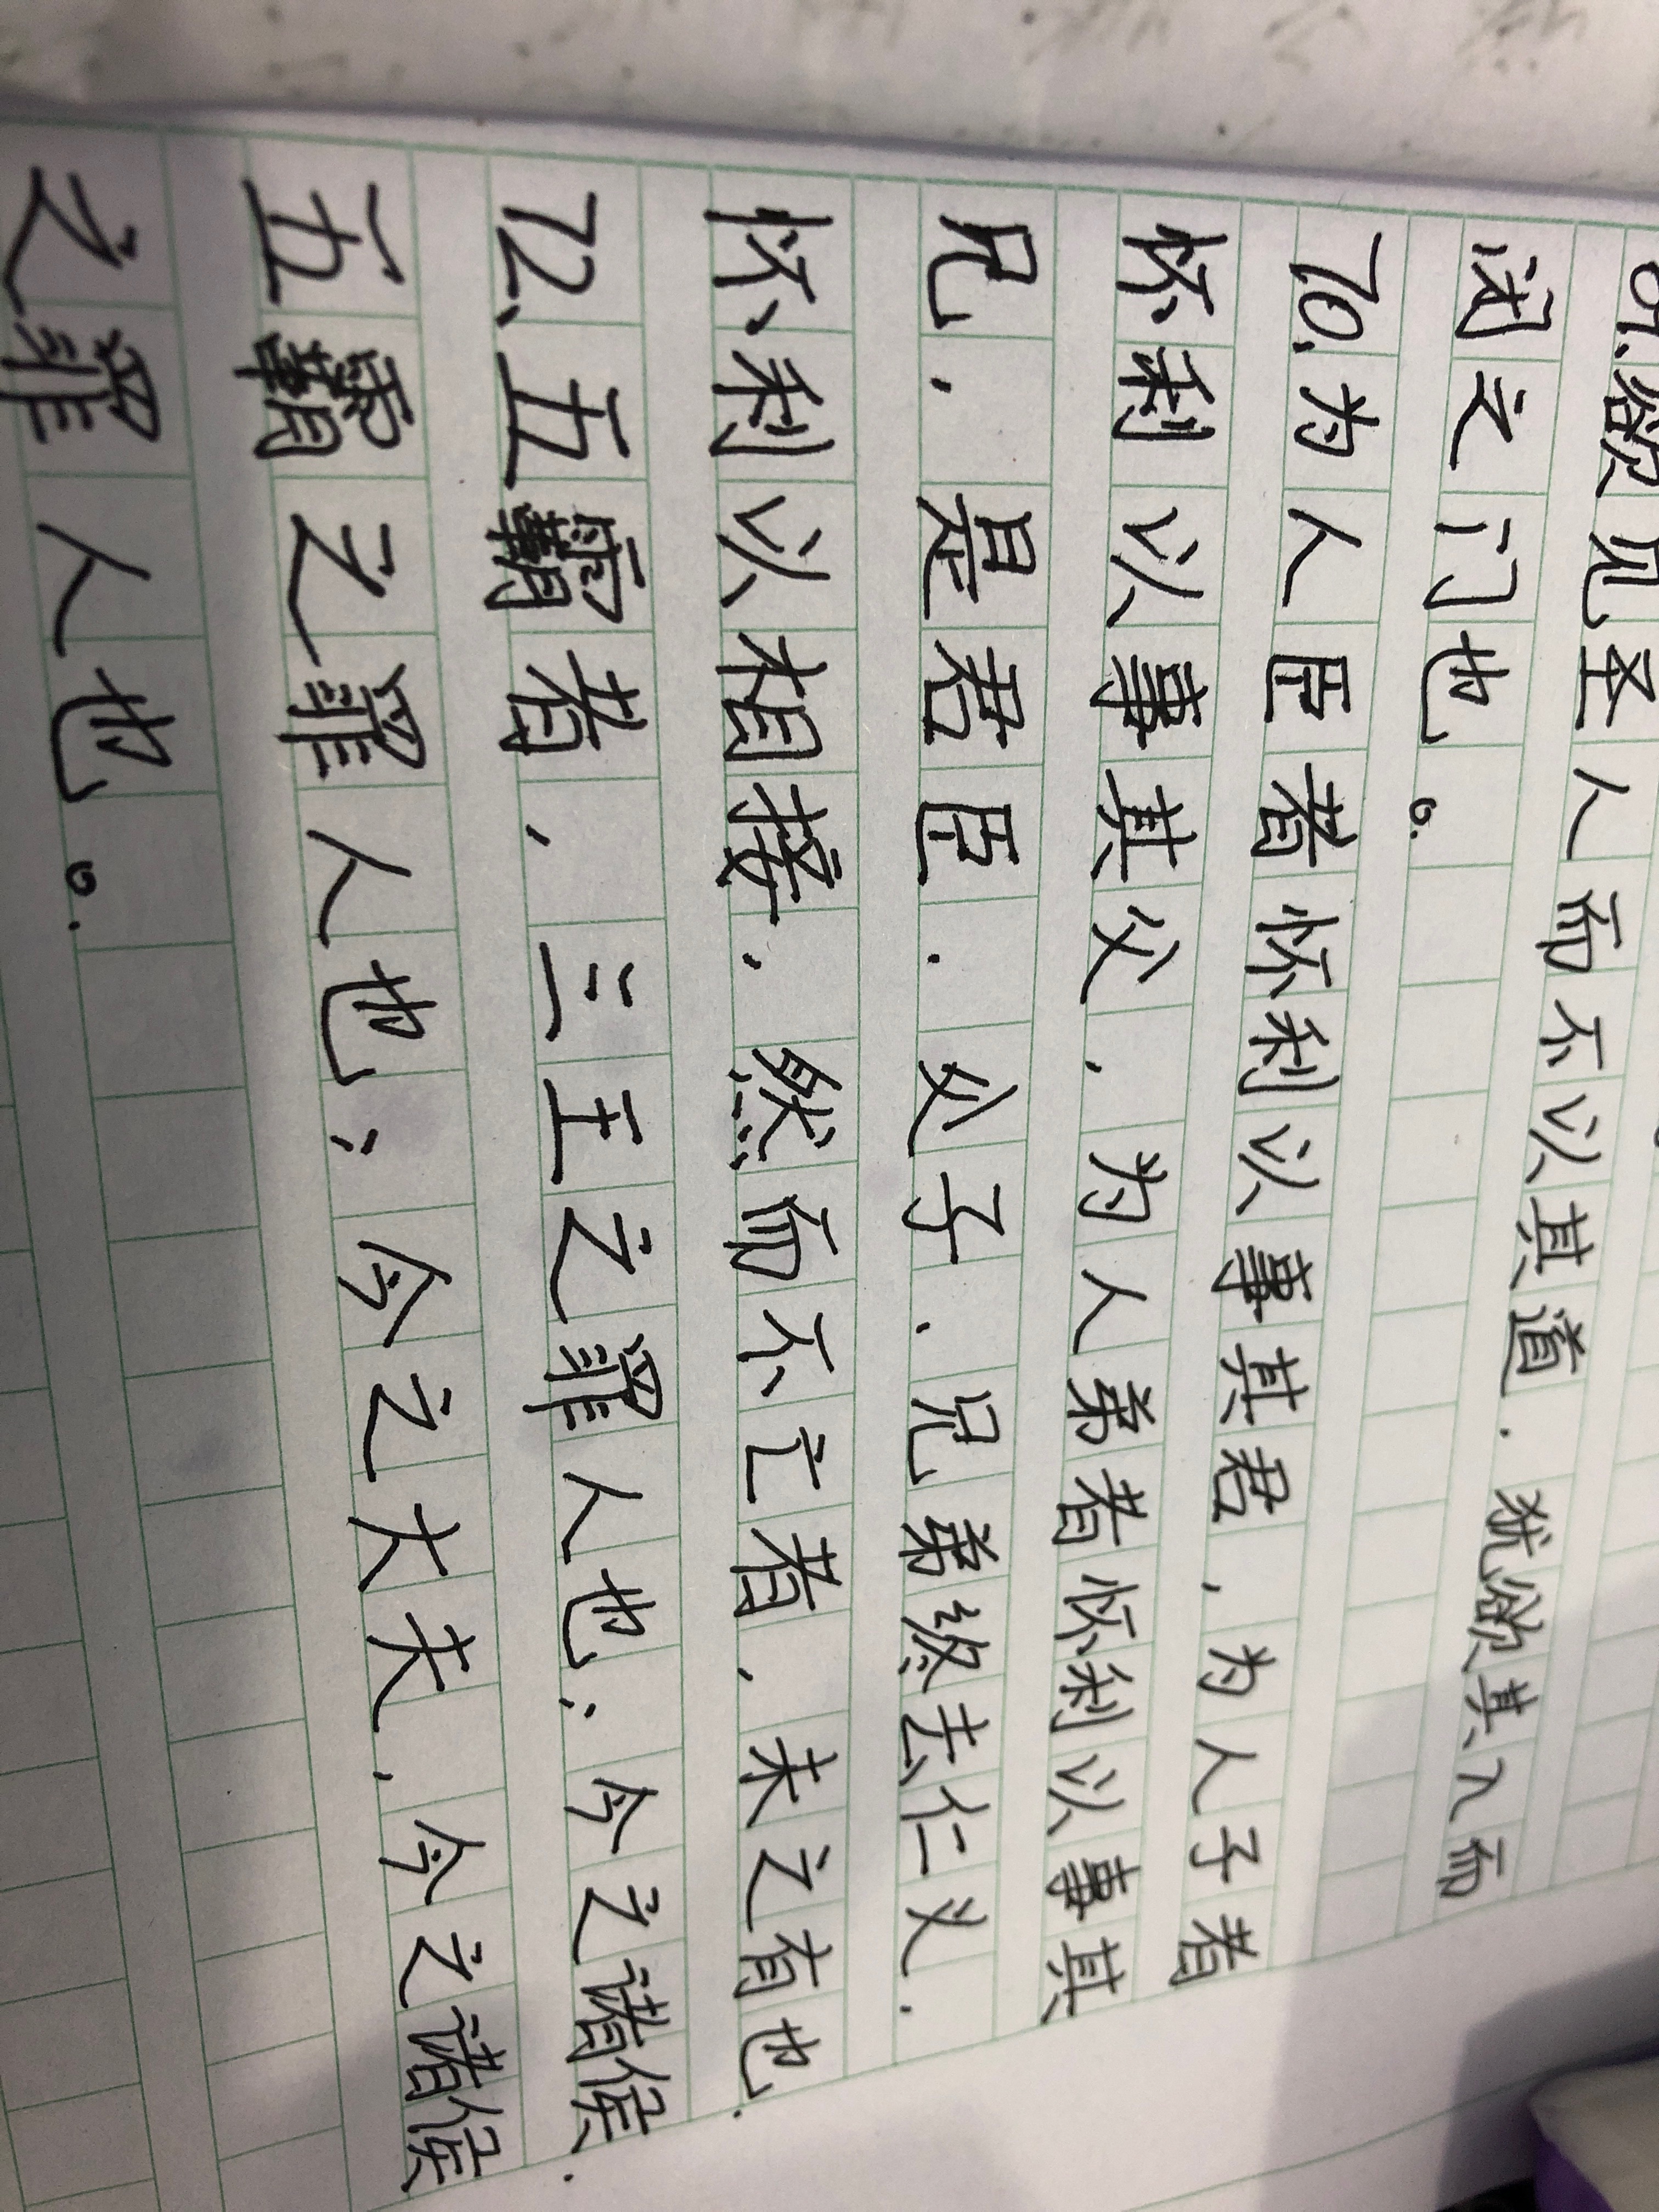 欲见圣人而不以其道.犹欲其入而
闭之门也。
70.为人臣者怀利以事其君,为人子者
怀利以事其父.为人弟者怀利以事其
兄.是君臣.处子.兄弟终去仁义.
怀利以相接.然而不亡者.未之有也.
72、五霸者.三王之罪人也;今之诸侯.
五霸之罪人也;今之大夫.今之诸侯
之罪人也。